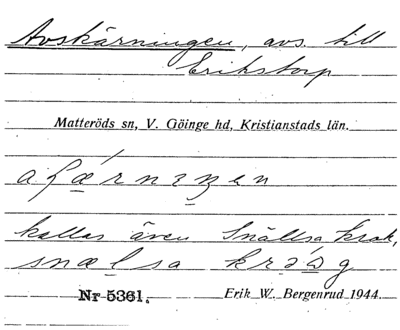 Avskärningen, avs. till
Erikstorp
Matteröds sn, V. Göinge hd, Kristianstads län.
kallas även Snällsa krok,
Nr 5361.
Erik W. Bergenrud 1944.